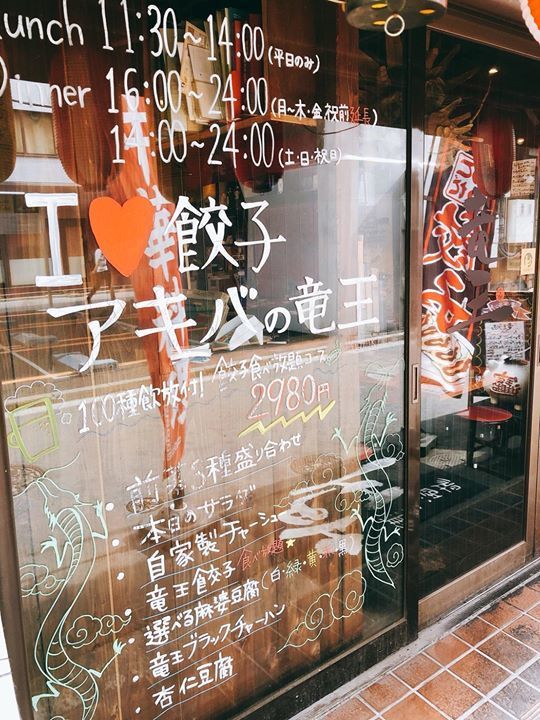 Lunch 11:30~14:00(平日のみ)
Dinner 16:00~24:00(月~木・金祝前延長)
14:00~24:00(土・日・祝日)
I♥餃子
アキバの竜王
100種飲放付!餃子食べ放題コース
2980円
・前菜5種盛り合わせ
・本日のサラダ
・自家製チャーシュー
・竜王餃子(食べ放題★
・選べる麻婆豆腐(白・緑・黄・赤・黒)
・竜王ブラックチャーハン
・杏仁豆腐
竜王